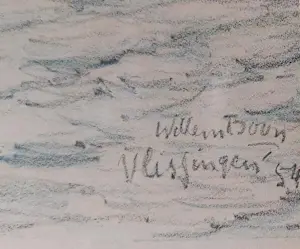 Willem Boon
Vlissingen '54